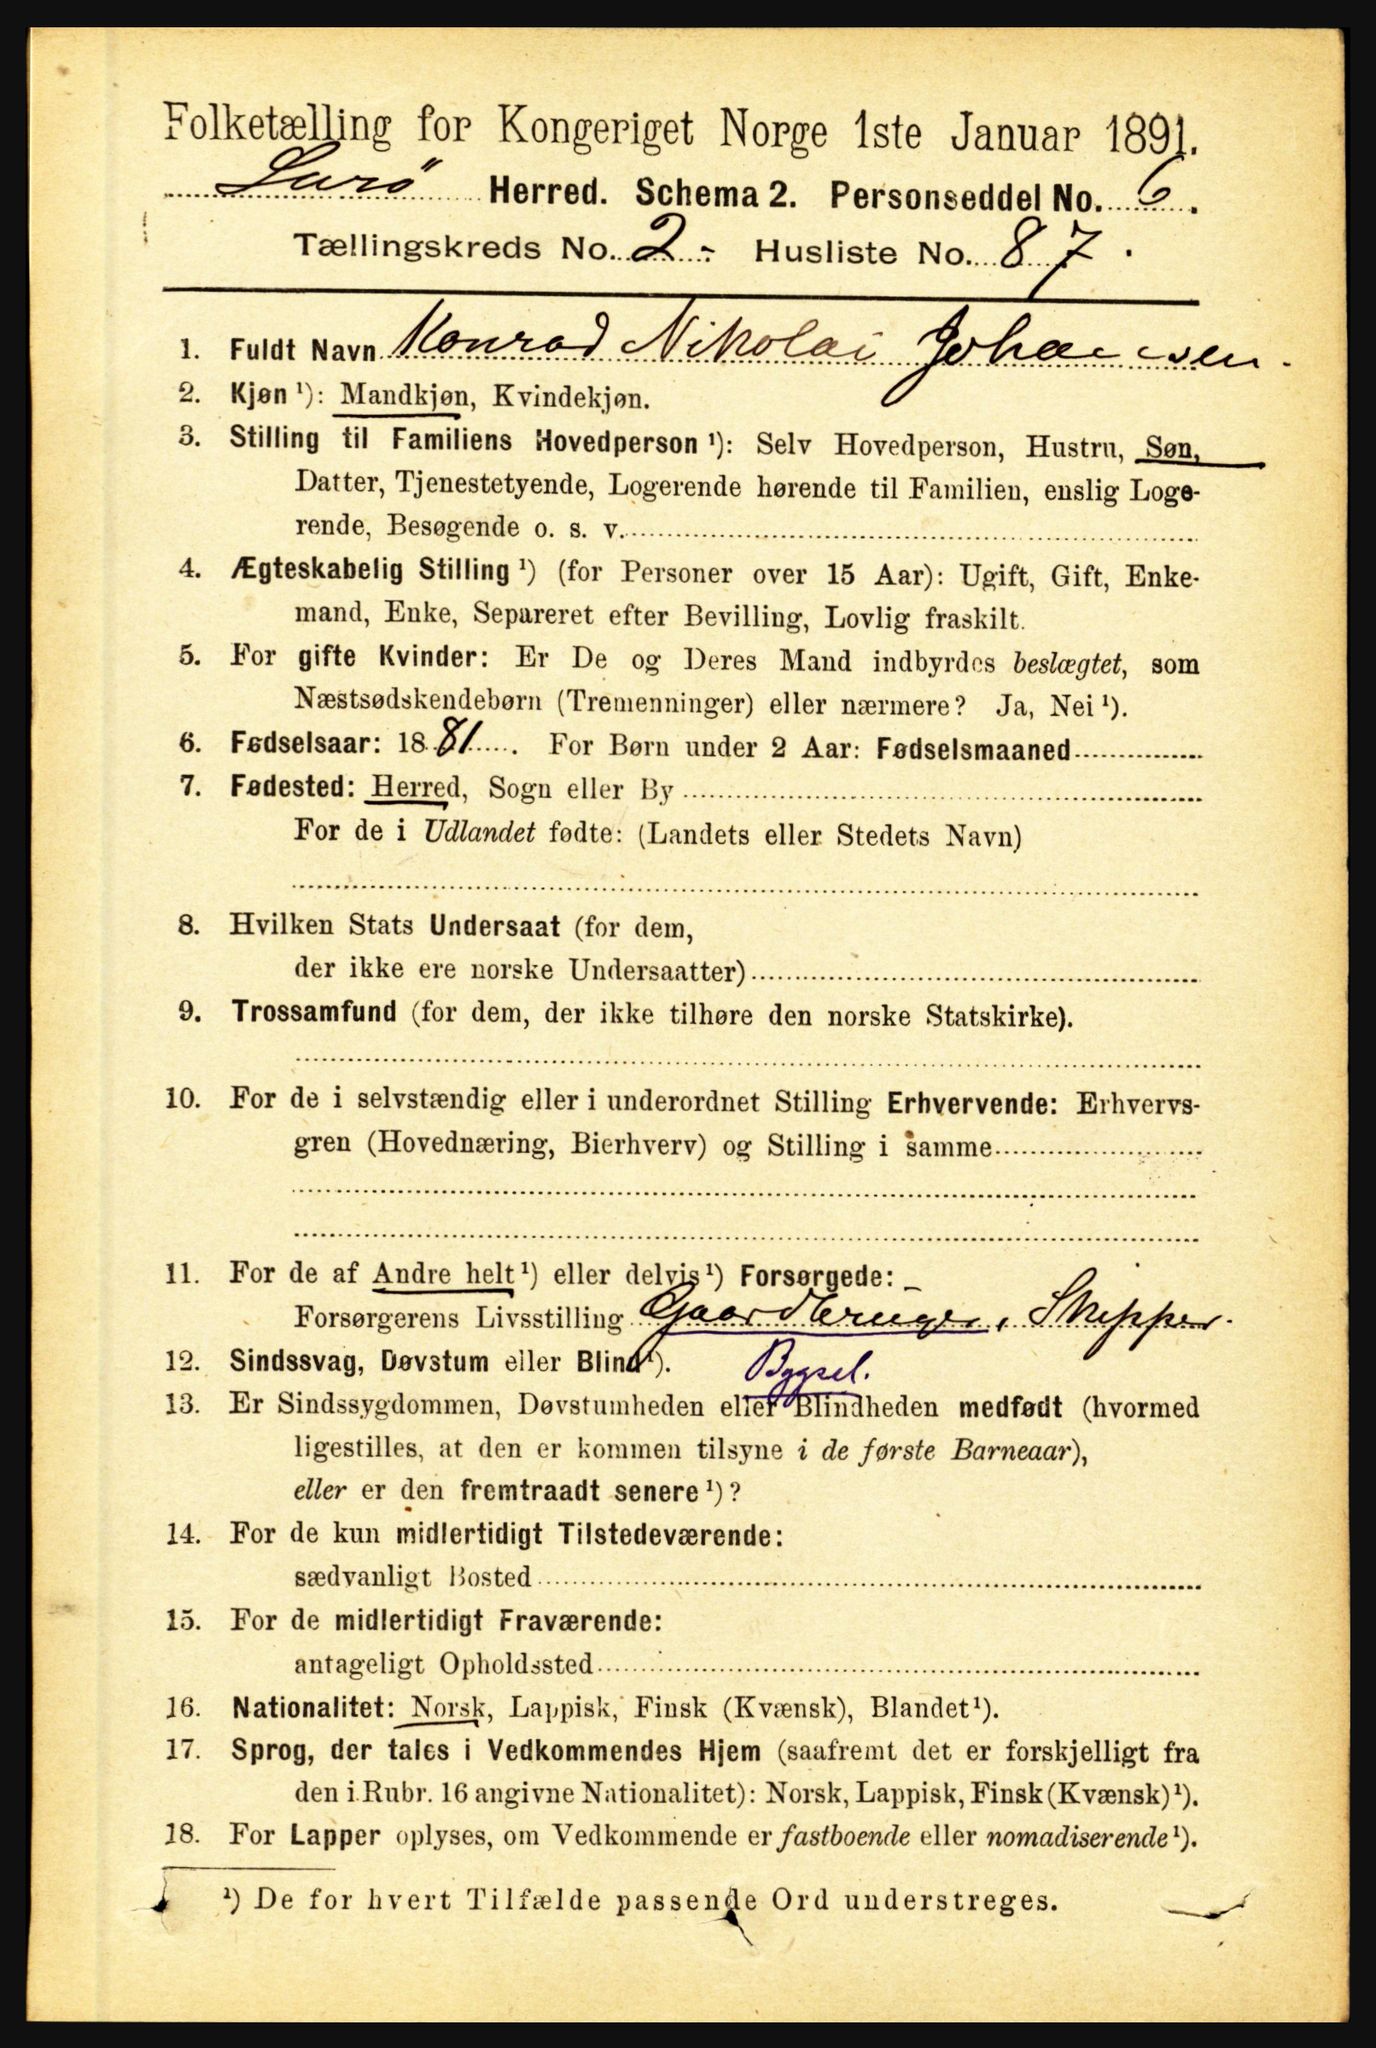 Folketælling for Kongeriget Norge 1ste Januar 1891.
Lurø Herred. Schema 2. Personseddel No. 6.
Tællingskreds No. 2. Husliste No. 87.
1. Fuldt Navn Konrad Nikolai Johansen.
2. Kjøn ¹): Mandkjøn, Kvindekjøn.
3. Stilling til Familiens Hovedperson ¹): Selv Hovedperson, Hustru, Søn,
Datter, Tjenestetyende, Logerende hørende til Familien, enslig Loge-
rende, Besøgende o. s. v.
4. Ægteskabelig Stilling ¹) (for Personer over 15 Aar): Ugift, Gift, Enke-
mand, Enke, Separeret efter Bevilling, Lovlig fraskilt.
5. For gifte Kvinder: Er De og Deres Mand indbyrdes beslægtet, som
Næstsødskendebørn (Tremenninger) eller nærmere? Ja, Nei ¹).
6. Fødselsaar: 1881. For Børn under 2 Aar: Fødselsmaaned
7. Fødested: Herred, Sogn eller By
For de i Udlandet fødte: (Landets eller Stedets Navn)
8. Hvilken Stats Undersaat (for dem,
der ikke ere norske Undersaatter)
9. Trossamfund (for dem, der ikke tilhøre den norske Statskirke).
10. For de i selvstændig eller i underordnet Stilling Erhvervende: Erhvervs-
gren (Hovednæring, Bierhverv) og Stilling i samme
11. For de af Andre helt ¹) eller delvis ¹) Forsørgede:
Forsørgerens Livsstilling Gaardbruger, Skipper.
12. Sindssvag, Døvstum eller Blind ¹). Bygsel.
13. Er Sindssygdommen, Døvstumheden eller Blindheden medfødt (hvormed
ligestilles, at den er kommen tilsyne i de første Barneaar),
eller er den fremtraadt senere ¹)?
14. For de kun midlertidigt Tilstedeværende:
sædvanligt Bosted
15. For de midlertidigt Fraværende:
antageligt Opholdssted
16. Nationalitet: Norsk, Lappisk, Finsk (Kvænsk), Blandet ¹).
17. Sprog, der tales i Vedkommendes Hjem (saafremt det er forskjelligt fra
den i Rubr. 16 angivne Nationalitet): Norsk, Lappisk, Finsk (Kvænsk) ¹).
18. For Lapper oplyses, om Vedkommende er fastboende eller nomadiserende ¹).
¹) De for hvert Tilfælde passende Ord understreges.